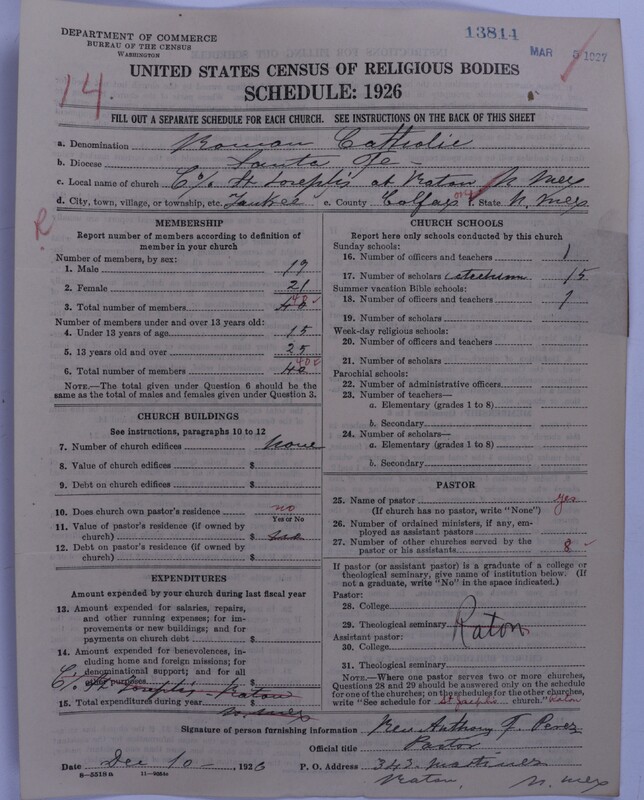 DEPARTMENT OF COMMERCE
BUREAU OF THE CENSUS
WASHINGTON
13814
MAR 5 1927
14
UNITED STATES CENSUS OF RELIGIOUS BODIES
SCHEDULE: 1926
FILL OUT A SEPARATE SCHEDULE FOR EACH CHURCH. SEE INSTRUCTIONS ON THE BACK OF THIS SHEET
a. Denomination Roman Catholic
b. Diocese Santa Fe
c. Local name of church C/o St Joseph's at Raton N Mex
d. City, town, village, or township, etc. Yankee e. County Colfax State N. Mex
R
MEMBERSHIP
Report number of members according to definition of
member in your church
Number of members, by sex:
1. Male 19
2. Female 21
3. Total number of members 40
Number of members under and over 13 years old:
4. Under 13 years of age 15
5. 13 years old and over 25
6. Total number of members 40
NOTE.—The total given under Question 6 should be
the same as the total of males and females given under Question 3.
CHURCH BUILDINGS
See instructions, paragraphs 10 to 12
7. Number of church edifices None
8. Value of church edifices $
9. Debt on church edifices $
10. Does church own pastor's residence no
Yes or No
11. Value of pastor's residence (if owned by
church) $
12. Debt on pastor's residence (if owned by
church) $
EXPENDITURES
Amount expended by your church during last fiscal year
13. Amount expended for salaries, repairs,
and other running expenses; for im-
provements or new buildings; and for
payments on church debt $
14. Amount expended for benevolences, in-
cluding home and foreign missions; for
denominational support; and for all
other purposes $
C/o St Joseph's - Raton
15. Total expenditures during year $
N. Mex
CHURCH SCHOOLS
Report here only schools conducted by this church
Sunday schools:
16. Number of officers and teachers 1
17. Number of scholars Catechism 15
Summer vacation Bible schools:
18. Number of officers and teachers 1
19. Number of scholars
Week-day religious schools:
20. Number of officers and teachers
21. Number of scholars
Parochial schools:
22. Number of administrative officers
23. Number of teachers—
a. Elementary (grades 1 to 8)
b. Secondary
24. Number of scholars—
a. Elementary (grades 1 to 8)
b. Secondary
PASTOR
25. Name of pastor yes
(If church has no pastor, write "None")
26. Number of ordained ministers, if any, em-
ployed as assistant pastors
27. Number of other churches served by the
pastor or his assistants 8
If pastor (or assistant pastor) is a graduate of a college or
theological seminary, give name of institution below. (If
not a graduate, write "No" in the space indicated.)
Pastor:
28. College
29. Theological seminary Raton
Assistant pastor:
30. College
31. Theological seminary
NOTE.—Where one pastor serves two or more churches,
Questions 28 and 29 should be answered only on the schedule
for one of the churches; on the schedules for the other churches,
write "See schedule for St Josephs church." Raton
Signature of person furnishing information Rev. Anthony F. Perez
Official title Pastor
Date Dec 10 - 1926 P. O. Address 342 Martinez
8-5518a
Raton, N. Mex